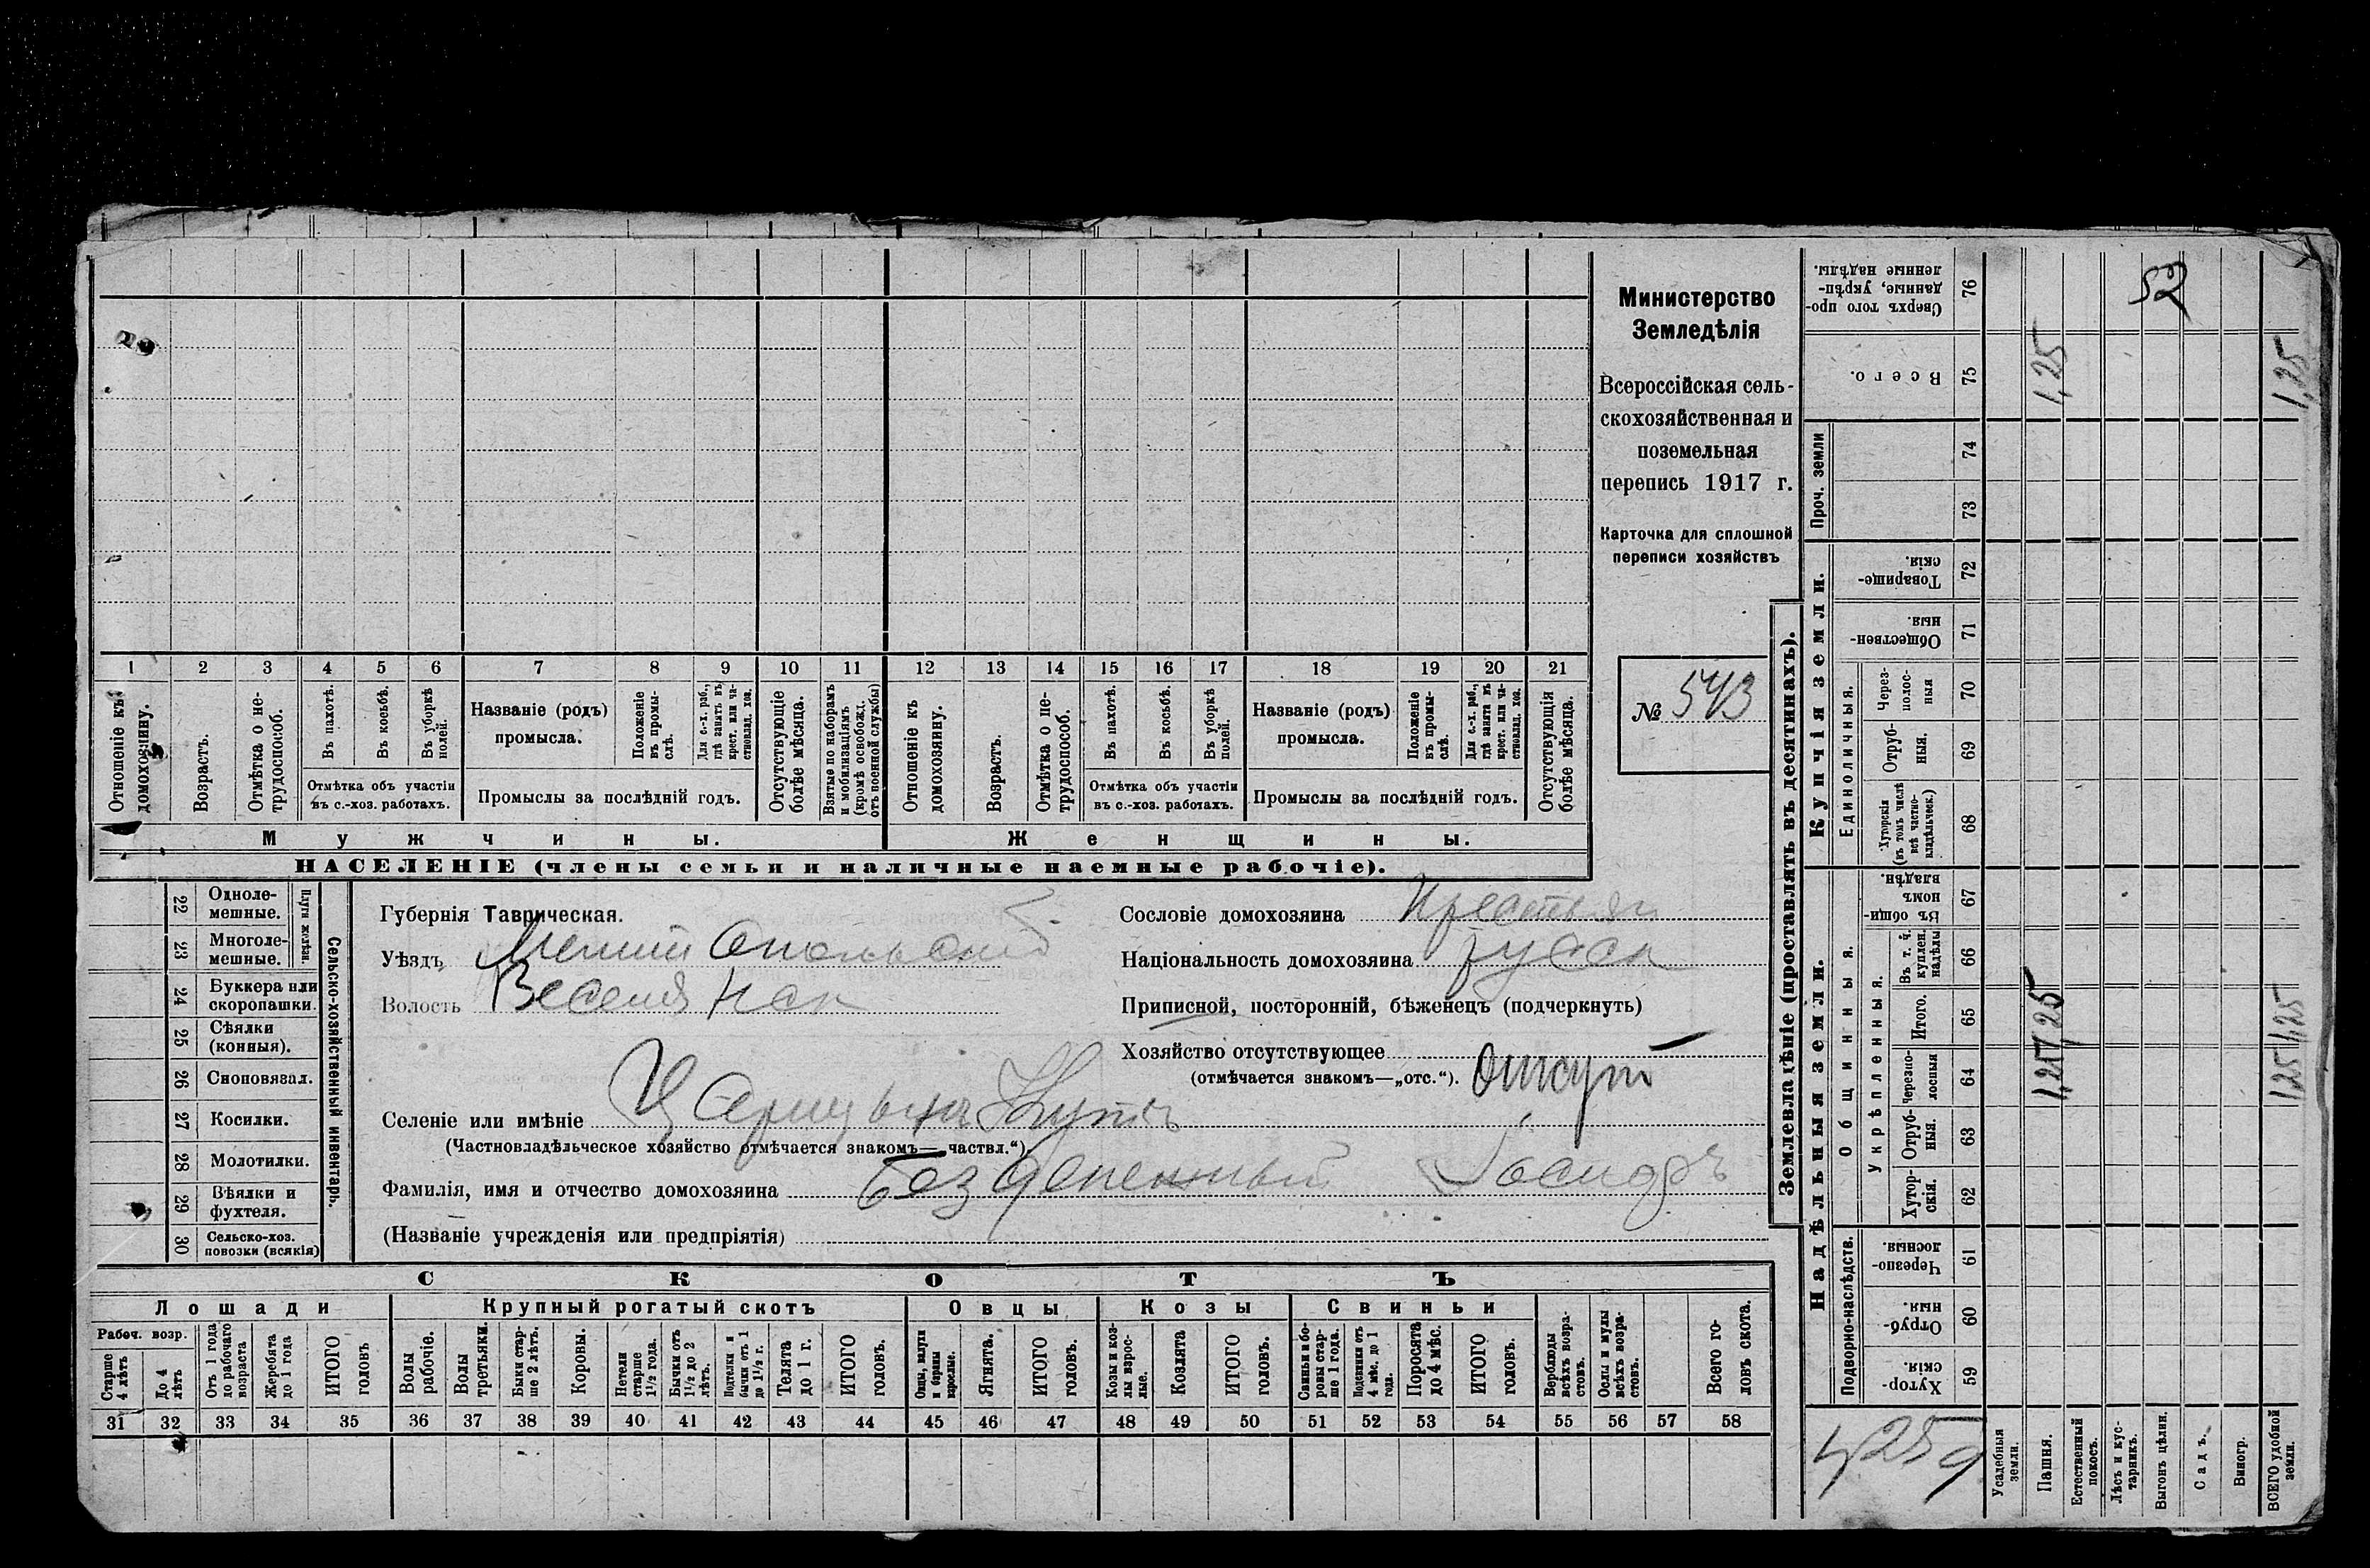 Министерство
Земледѣлія
Всероссійская сель-
скохозяйственная и
поземельная
перепись 1917 г.
Карточка для сплошной
переписи хозяйствъ
№ 543
1 2 3 4 5 6 7 8 9 10 11 12 13 14 15 16 17 18 19 20 21
Отношеніе къ домохозяину.
Возрастъ.
Отмѣтка о не-трудоспособ.
Въ пахотѣ.
Въ косьбѣ.
Въ уборкѣ полей.
Отмѣтка объ участіи
въ с.-хоз. работахъ.
Названіе (родъ)
промысла.
Положеніе въ промы-слѣ.
Для с.-х. раб., гдѣ занятъ въ крест. или ча-стновлад. хоз.
Промыслы за послѣдній годъ.
Отсутствующіе болѣе мѣсяца.
Взятые по наборамъ и мобилизаціямъ (кромѣ освобожд. отъ военной службы)
Отношеніе къ домохозяину.
Возрастъ.
Отмѣтка о не-трудоспособ.
Въ пахотѣ.
Въ косьбѣ.
Въ уборкѣ полей.
Отмѣтка объ участіи
въ с.-хоз. работахъ.
Названіе (родъ)
промысла.
Положеніе въ промы-слѣ.
Для с.-х. раб., гдѣ занята въ крест. или ча-стновлад. хоз.
Промыслы за послѣдній годъ.
Отсутствующія болѣе мѣсяца.
Мужчины.
Женщины.
НАСЕЛЕНІЕ (члены семьи и наличные наемные рабочіе).
Сельско-хозяйственный инвентарь.
Плуги желѣзн.
22 Одноле-мешные.
23 Многоле-мешные.
24 Буккера или скоропашки.
25 Сѣялки (конныя).
26 Сноповязал.
27 Косилки.
28 Молотилки.
29 Вѣялки и фухтеля.
30 Сельско-хоз. повозки (всякія)
Губернія Таврическая.
Уѣздъ Мелитопольскій
Волость Веселянск
Селеніе или имѣніе Царицынъ Кутъ
(Частновладѣльческое хозяйство отмѣчается знакомъ— частвл.“)
Фамилія, имя и отчество домохозяина Безденежный
(Названіе учрежденія или предпріятія)
Сословіе домохозяина Крестьян
Національность домохозяина русск
Приписной, посторонній, бѣженецъ (подчеркнуть)
Хозяйство отсутствующее
(отмѣчается знакомъ—„отс.“). отсут
СКОТЪ
Лошади
Крупный рогатый скотъ
Овцы
Козы
Свиньи
Рабоч. возр.
Старше 4 лѣтъ
До 4 лѣтъ
Отъ 1 года до рабочаго возраста
Жеребята до 1 года
ИТОГО головъ
Волы рабочіе.
Волы третьяки.
Быки стар-ше 2 лѣтъ.
Коровы.
Нетели старше 1½ года.
Бычки отъ 1½ до 2 лѣтъ.
Подтелки и бычки отъ 1 до 1½ г.
Телята до 1 г.
ИТОГО головъ.
Овцы, валухи и бараны взрослые.
Ягнята.
ИТОГО головъ.
Козы и коз-лы взрос-лые.
Козлята
ИТОГО головъ.
Свиньи и бо-ровы стар-ше 1 года.
Подсвинки отъ 4 мѣс. до 1 года.
Поросята до 4 мѣс.
ИТОГО головъ.
Верблюды всѣхъ возра-стовъ.
Ослы и мулы всѣхъ возра-стовъ.
Всего го-ловъ скота.
31 32 33 34 35 36 37 38 39 40 41 42 43 44 45 46 47 48 49 50 51 52 53 54 55 56 57 58
Землевладѣніе (проставлять въ десятинахъ).
Надѣльныя земли.
Купчія земли.
Проч. земли
Подворно-наслѣдств.
Общинныя.
Укрѣпленныя.
Единоличныя.
59 Хутор-скія.
60 Отруб-ныя.
61 Черезпо-лосныя.
62 Хутор-скія.
63 Отруб-ныя.
64 Черезпо-лосныя
65 Итого.
66 Въ т. ч. куплен. надѣлы
67 Въ общин-номъ владѣн.
68 Хуторскія (въ томъ числѣ всѣ частно-владѣльческ.)
69 Отруб-ныя.
70 Через-полос-ныя
71 Обществен-ныя.
72 Товарище-скія.
73
74
75 Всего.
76 Сверхъ того про-данные, укрѣп-ленные надѣлы.
Усадебныя земли.
Пашня.
Естественный покосъ.
Лѣсъ и кус-тарникъ.
Выгонъ цѣлин.
Садъ.
Виногр.
ВСЕГО удобной земли.
52
1,25
1,25
1,25
1,25
1,25
1,25